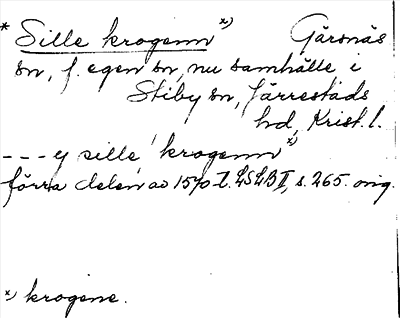 * Sille krogenn x) Gärsnäs
sn, f. egen sn, nu samhälle i
Stiby sn, Järrestads
hd, Krist. l.
--- y sille krogenn x)
förra delen av 1570-t. LSLB II, s. 265. orig.
x) krogene.